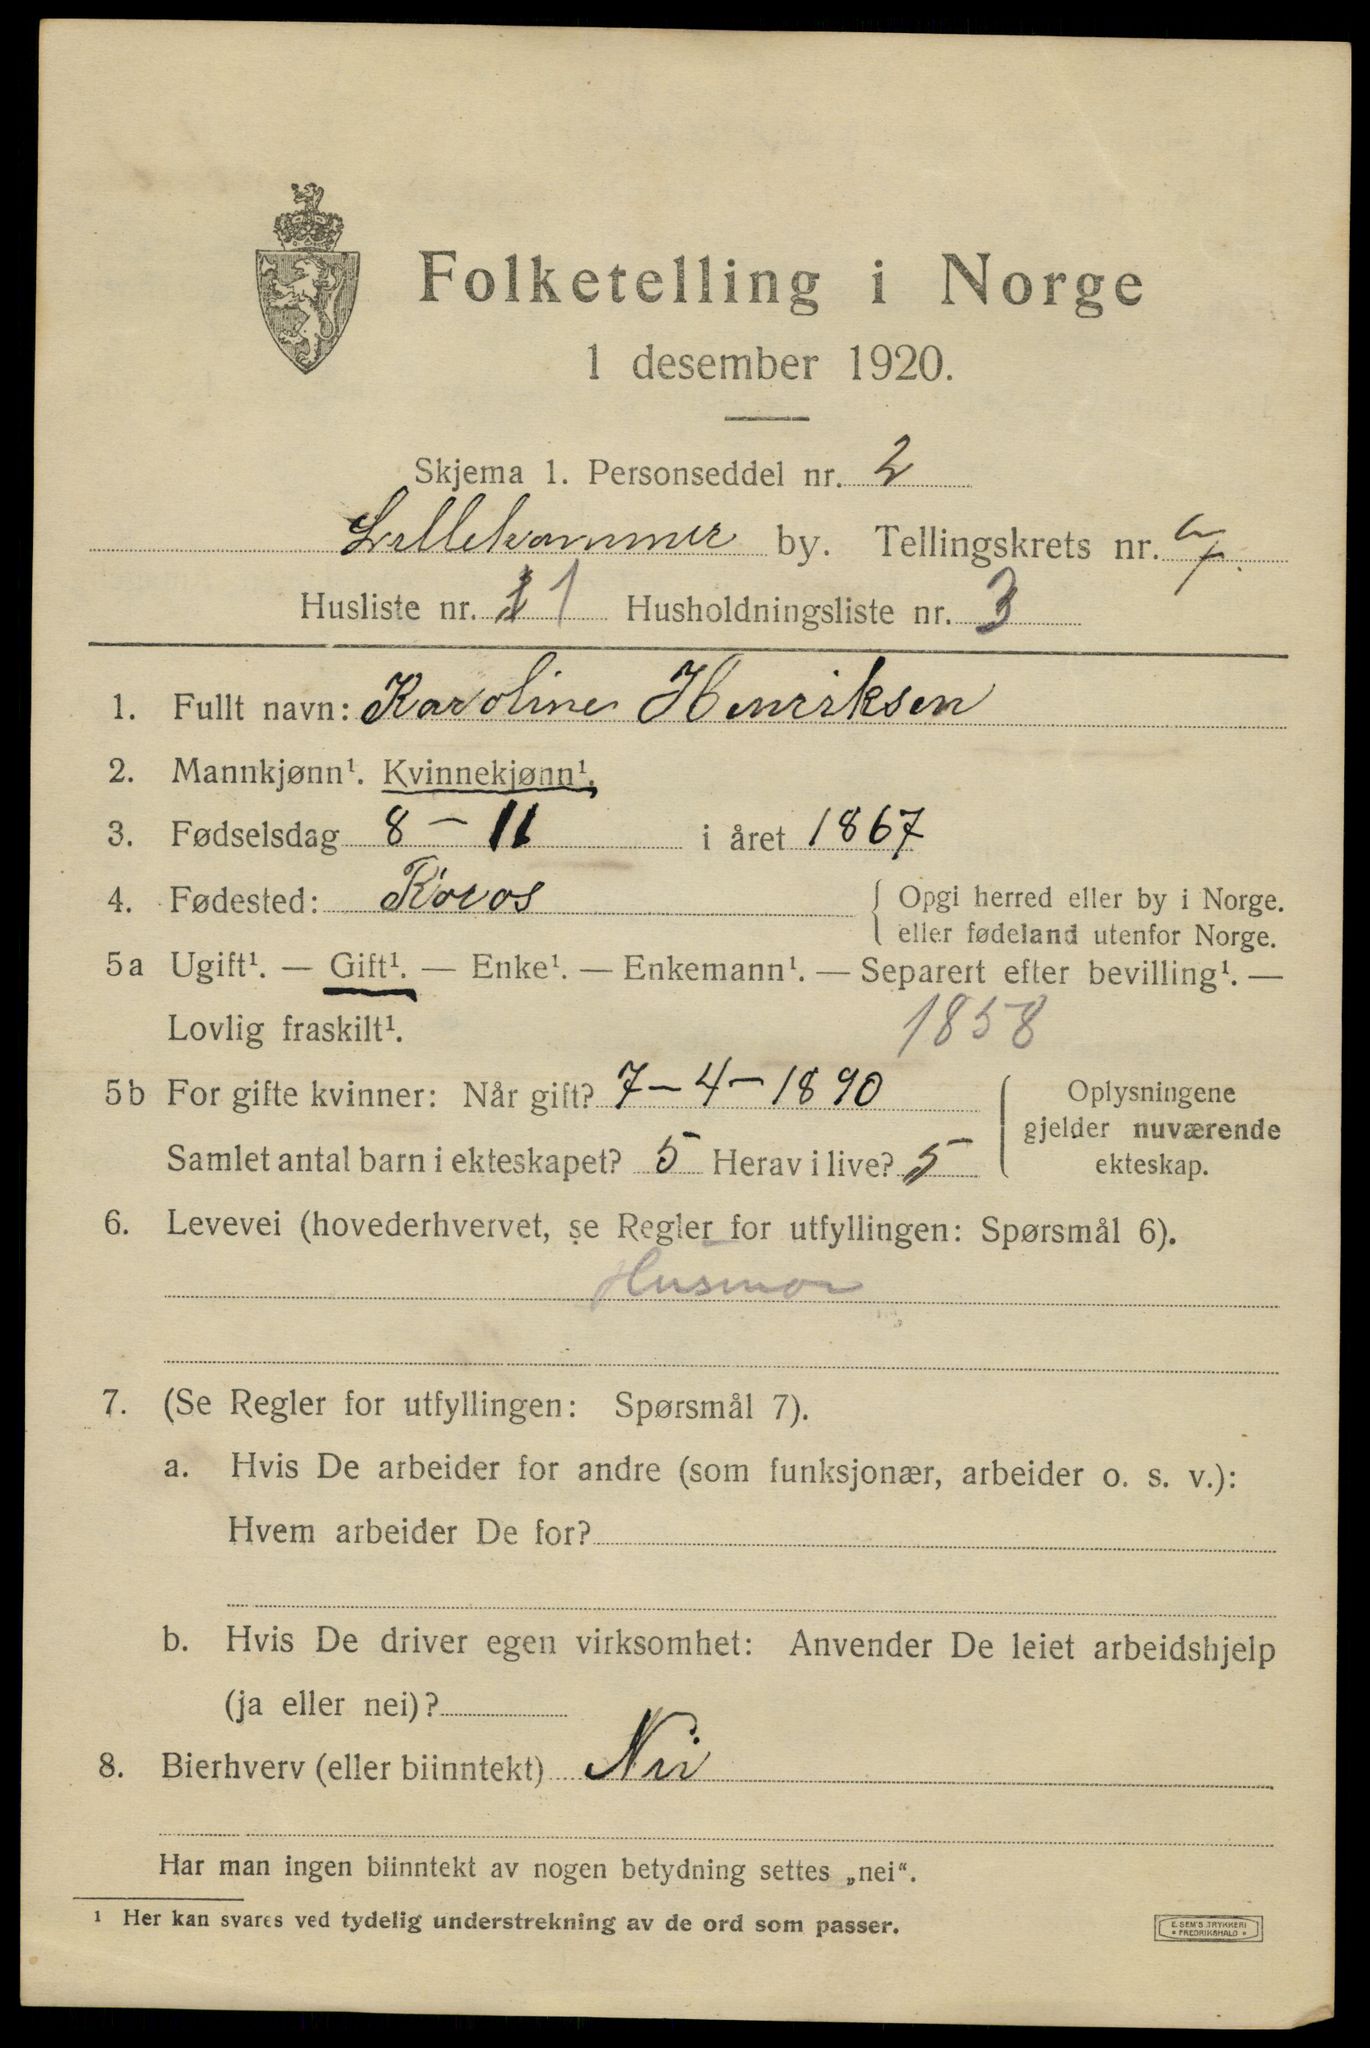 Folketelling i Norge
1 desember 1920.
Skjema 1. Personseddel nr. 2
Lillehammer by. Tellingskrets nr. 4.
Husliste nr. 11 Husholdningsliste nr. 3
1. Fullt navn: Karoline Henriksen
2. Mannkjønn¹. Kvinnekjønn¹.
3. Fødselsdag 8 – 11 i året 1867
4. Fødested: Røros { Opgi herred eller by i Norge.
eller fødeland utenfor Norge.
5a Ugift¹. — Gift¹. — Enke¹. — Enkemann¹. — Separert efter bevilling¹. —
Lovlig fraskilt¹. 1858
5b For gifte kvinner: Når gift? 7 – 4 – 1890 { Oplysningene
gjelder nuværende
Samlet antal barn i ekteskapet? 5 Herav i live? 5 ekteskap.
6. Levevei (hovederhvervet, se Regler for utfyllingen: Spørsmål 6).
Husmor
7. (Se Regler for utfyllingen: Spørsmål 7).
a. Hvis De arbeider for andre (som funksjonær, arbeider o. s. v.):
Hvem arbeider De for?
b. Hvis De driver egen virksomhet: Anvender De leiet arbeidshjelp
(ja eller nei)?
8. Bierhverv (eller biinntekt) Nei
Har man ingen biinntekt av nogen betydning settes „nei“.
¹ Her kan svares ved tydelig understrekning av de ord som passer.
E. SEM'S TRYKKERI
• FREDRIKSHALD •